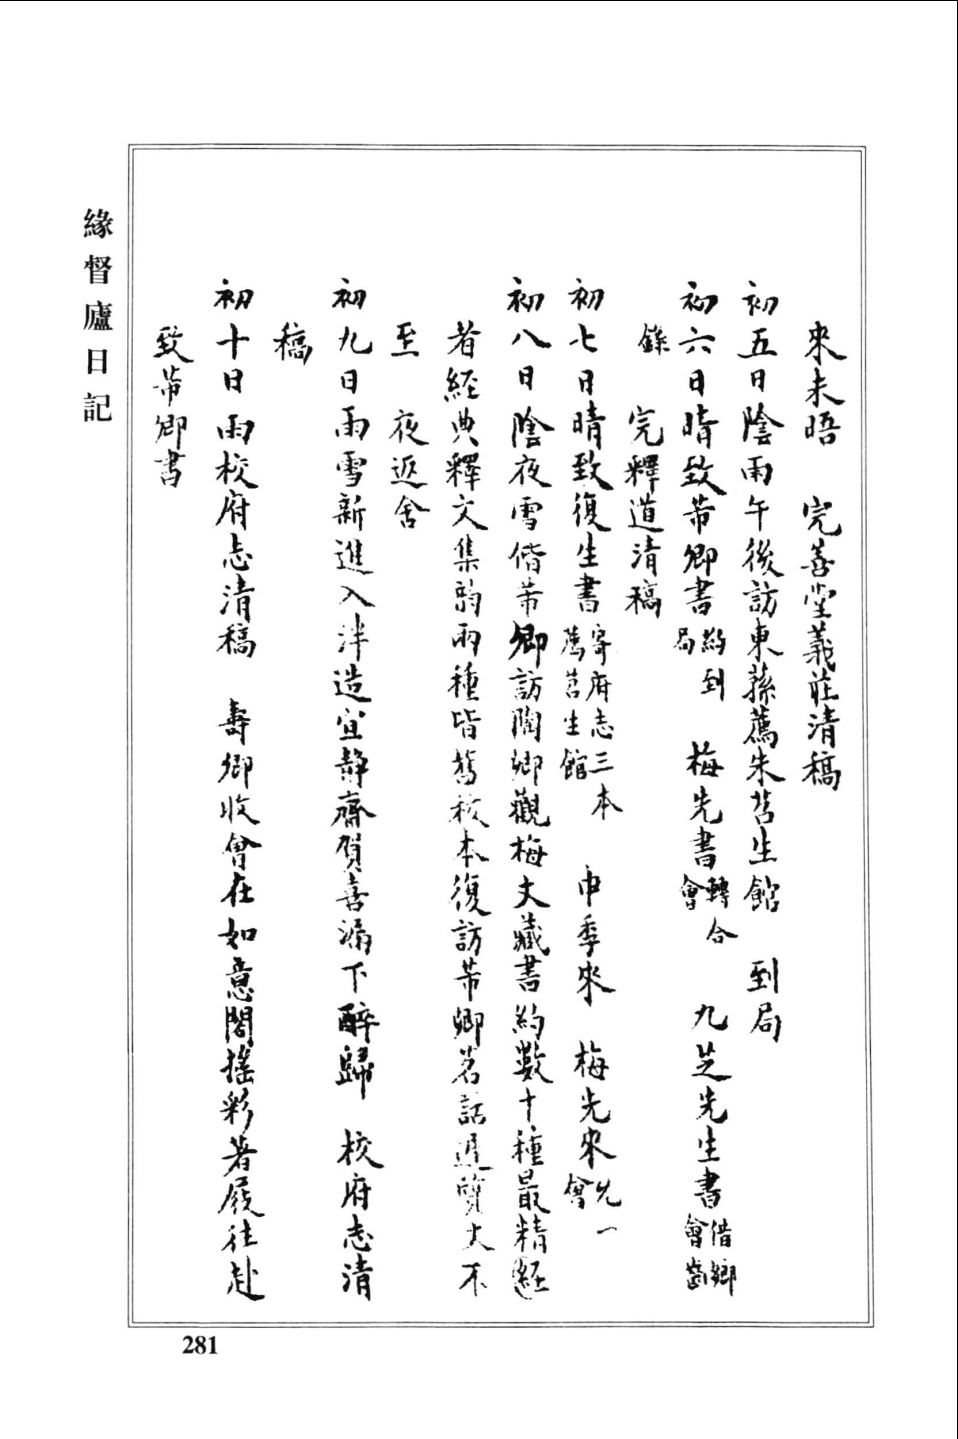 來未晤　完善堂義莊清稿
初五日陰雨午後訪東蓀薦朱苕生館　到局
初六日晴致芾卿書 到局　梅先書 轉合會　九芝先生書 借鄉會齒
錄　完釋道清稿
初七日晴致復生書 寄府志三本薦苕生館　申季來　梅先來 允一會
初八日陰夜雪偕芾卿訪陶卿觀梅丈藏書約數十種最精經
者經典釋文集韵兩種皆舊校本復訪芾卿茗話遲質丈不
至　夜返舍
初九日雨雪新進入泮造宜靜齋賀喜漏下醉歸　校府志清
稿
初十日雨校府志清稿　壽卿收會在如意閣搖彩著屐往赴
致芾卿書
緣督廬日記
281